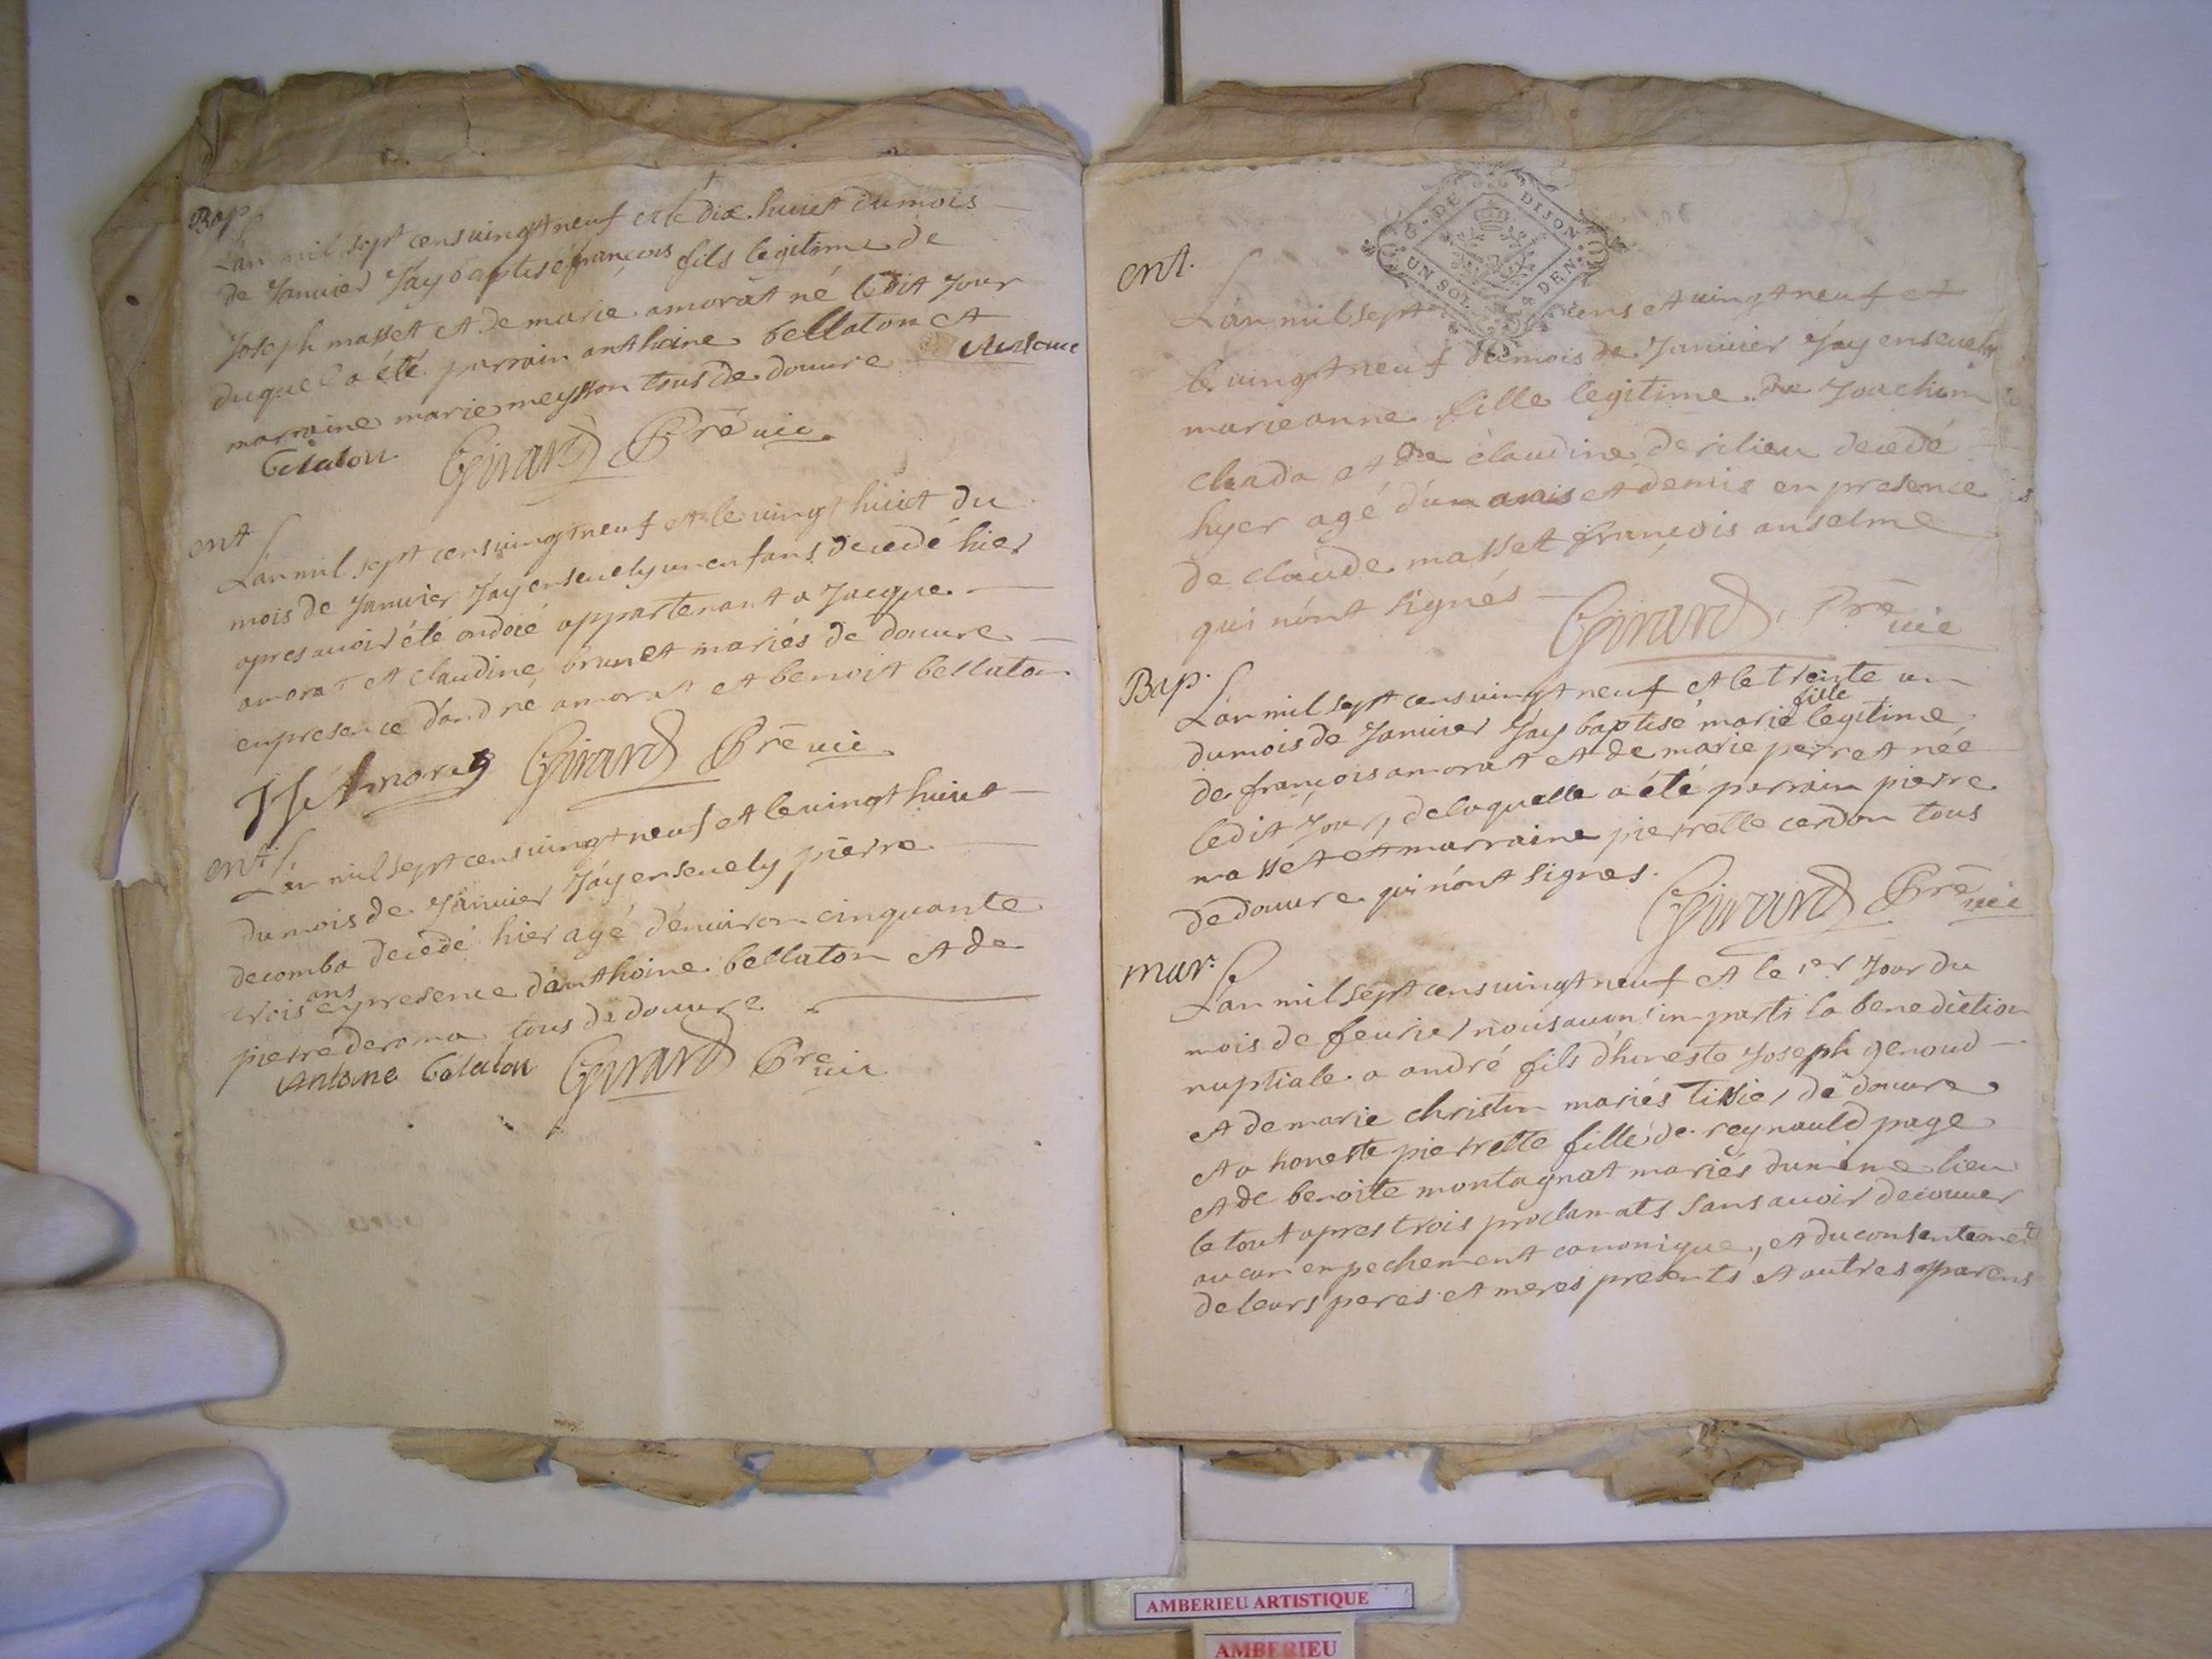 Bap
L'an mil sept cens vingt neuf et le dix huict du mois
de Januier J'ay baptisé françois fils legitime de
Joseph masset et de marie amorat né ledit Jour
duquel a été parrain anthoine bellaton et
marraine marie meysson tous de douure Antoine
Belaton Girard Prê vic.
ent
L'an mil sept cens vingt neuf et le vingt huict du
mois de Januier J'ay enseuely un enfans decedé hier
apres auoir été ondoié appartenant a Jacque
amorat et claudine brunet mariés de douure
en presence d'andré amorat et benoit bellaton
Amorat Girard Prê vic
ent.
L'an mil sept cens vingt neuf et le vingt huict
du mois de Januier J'ay enseuely pierre
decomba decedé hier agé d'enuiron cinquante
trois ans en presence d'anthoine bellaton et de
pierre deroma tous de douure
Antoine Belaton Girard Prê vic
G. DE DIJON
UN SOL 4 DEN.
ent.
L'an mil sept cens et vingt neuf et
le vingt neuf du mois de Januier J'ay enseuely
marieanne fille legitime de Joachim
chada et de claudine derilieu decedé
hyer agé d'un anis et demis en presence
de claude masset françois anselme
qui n'ont signés
Girard, Prê vic
Bap.
L'an mil sept cens vingt neuf et le trente un
du mois de Januier J'ay baptisé marie fille legitime
de françois amorat et de marie perret née
ledit Jour, de laquelle a été parrain pierre
masset et marraine pierrette cerdon tous
de douure qui n'ont signes.
Girard Prê vic
mar.
L'an mil sept cens vingt neuf et le 1er Jour du
mois de feurier nous auons imparti la benediction
nuptiale a andré fils d'honeste Joseph genoud
et de marie christin mariés tissier de douure
et a honeste pierrette fille de reynauld page
et de benoite montagnat mariés du même lieu
le tout apres trois proclamats sans auoir decouuer
aucun empechement canonique, et du consentement
de leurs peres et meres presents et autres parens
AMBERIEU ARTISTIQUE
AMBERIEU